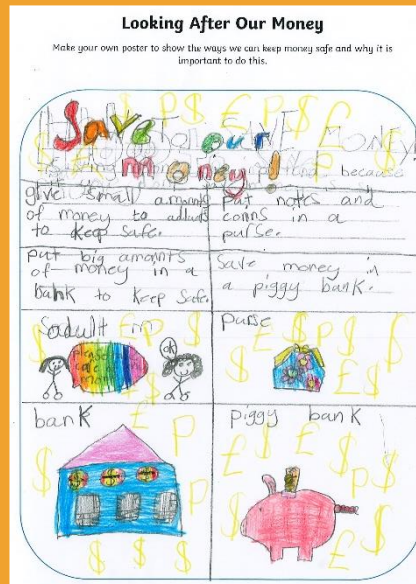 Looking After Our Money
Make your own poster to show the ways we can keep money safe and why it is
important to do this.
Save our
money!
because
give small amounts
of money to adults
to keep safe.
put notes and
coins in a
purse.
put big amounts
of money in a
bank to keep safe.
Save money in
a piggy bank.
purse
please
care of
ok
bank
piggy bank